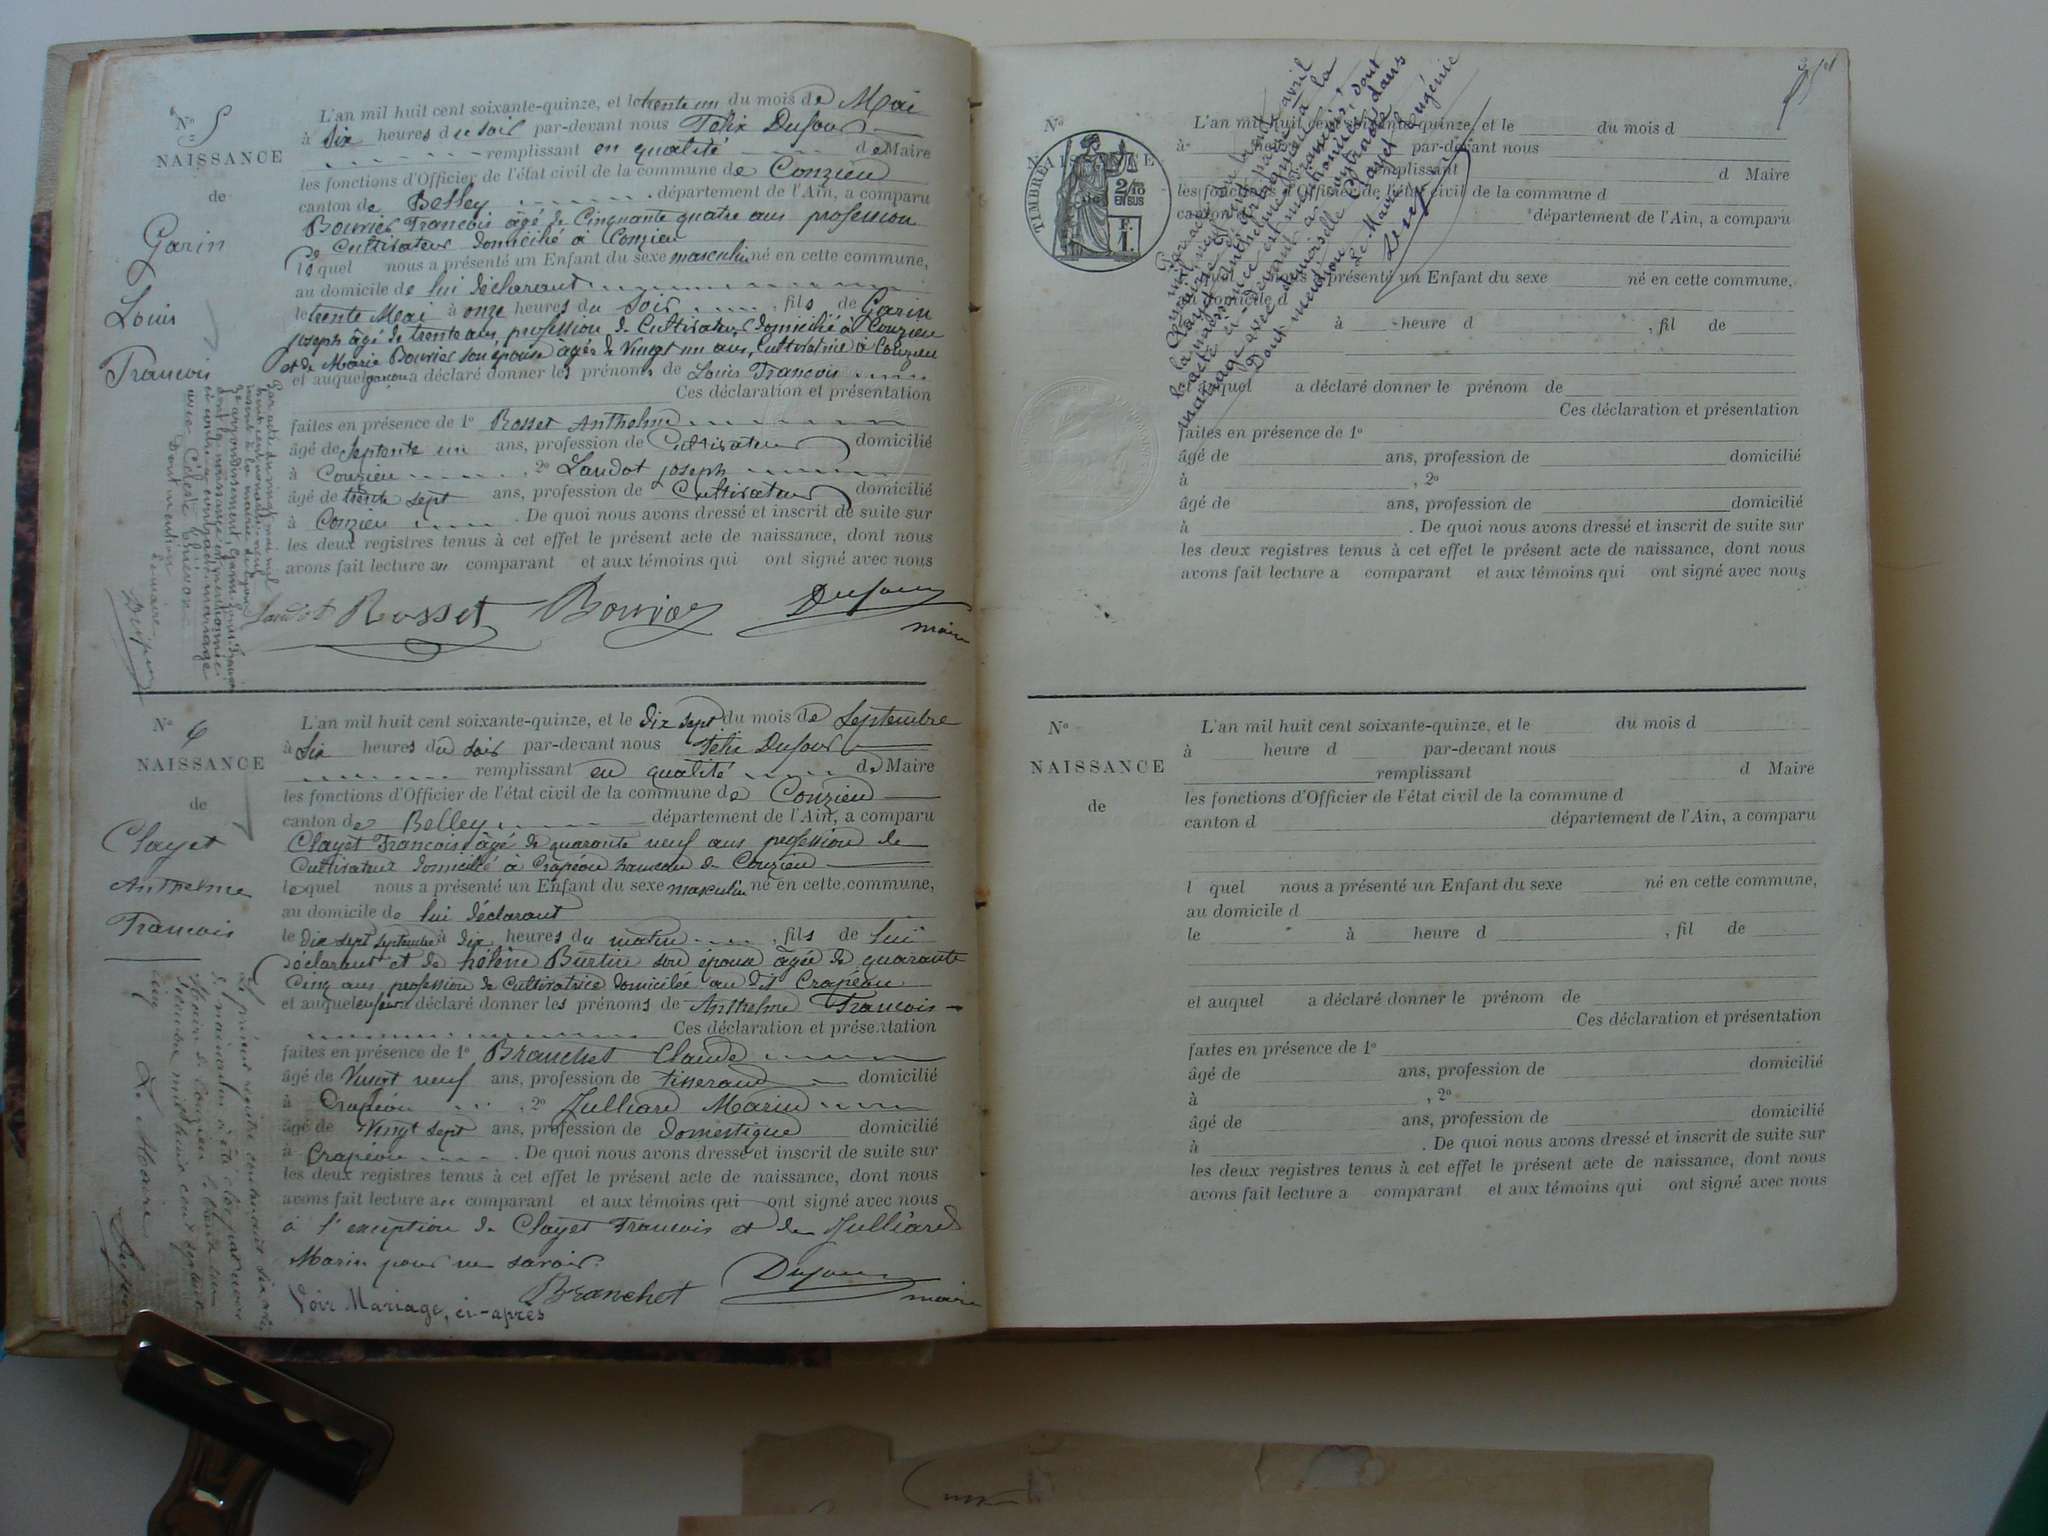 N° 5
NAISSANCE
de
Garin
Louis
Francois
L'an mil huit cent soixante-quinze, et le trente un du mois de Mai
à six heures du soir par-devant nous Félix Dufour
remplissant en qualité de Maire
les fonctions d'Officier de l'état civil de la commune de Conzieu
canton de Belley département de l'Ain, a comparu
Bouvier Francois âgé de Cinquante quatre ans profession
de Cultivateur domicilié à Conzieu
lequel nous a présenté un Enfant du sexe masculin né en cette commune,
au domicile de lui déclarant
le trente Mai à onze heures du soir, fils de Garin
joseph âgé de trente ans, profession de Cultivateur domicilié à Conzieu
et de Marie Bouvier son épouse âgée de Vingt un ans, Cultivatrice à Conzieu
et auquel garcon a déclaré donner les prénoms de Louis Francois
Ces déclaration et présentation
faites en présence de 1° Rosset Anthelme
âgé de Septente un ans, profession de Cultivateur domicilié
à Conzieu, 2° Landot joseph
âgé de trente sept ans, profession de Cultivateur domicilié
à Conzieu. De quoi nous avons dressé et inscrit de suite sur
les deux registres tenus à cet effet le présent acte de naissance, dont nous
avons fait lecture au comparant et aux témoins qui ont signé avec nous
Landot Rosset Bouvier Dufour
maire
Par acte du vingt mai mil
neuf
à la mairie de Lyon
arrondissement, Garin Louis Francois
dont la naissance est mentionnée
ci-contre a contracté mariage
avec
Dont mention
Le maire
Dufour
N° 6
NAISSANCE
de
Clayet
Anthelme
Francois
L'an mil huit cent soixante-quinze, et le dix sept du mois de Septembre
à Six heures du soir par-devant nous Félix Dufour
remplissant en qualité de Maire
les fonctions d'Officier de l'état civil de la commune de Conzieu
canton de Belley département de l'Ain, a comparu
Clayet Francois âgé de quarante neuf ans profession de
Cultivateur domicilié à Crapéou hameau de Conzieu
lequel nous a présenté un Enfant du sexe masculin né en cette commune,
au domicile de lui déclarant
le dix sept septembre à dix heures du matin, fils de lui
déclarant et de hélène Burtin son épouse âgée de quarante
Cinq ans profession de Cultivatrice domiciliée au dit Crapéou
et auquel enfant a déclaré donner les prénoms de Anthelme Francois
Ces déclaration et présentation
faites en présence de 1° Branchet Claude
âgé de Vingt neuf ans, profession de tisserand domicilié
à Crapéou, 2° Julliard Marin
âgé de Vingt sept ans, profession de domestique domicilié
à Crapéou. De quoi nous avons dressé et inscrit de suite sur
les deux registres tenus à cet effet le présent acte de naissance, dont nous
avons fait lecture au comparant et aux témoins qui ont signé avec nous
à l'exception de Clayet Francois et de Julliard
Marin pour ne savoir.
Branchet Dufour
maire
Voir Mariage, ci-après
Le présent registre contenant six actes
de naissances a été clos par nous
Maire de Conzieu le trente un
décembre mil huit cent septante
cinq
Le Maire
Dufour
Par acte du trente avril
mil neuf
mairie
Clayet Anthelme Francois, dont
la naissance est mentionnée dans
l'acte ci-devant a contracté
mariage avec demoiselle Clayet Eugénie
Dont mention
Le Maire
N°
NAISSANCE
TIMBRE
2/10
EN SUS
F.
1.
L'an mil huit cent soixante-quinze, et le du mois d
à heure par-devant nous
remplissant d Maire
les fonctions d'Officier de l'état civil de la commune d
canton département de l'Ain, a comparu
présenté un Enfant du sexe né en cette commune,
domicile d
à heure d, fil de
auquel a déclaré donner le prénom de
Ces déclaration et présentation
faites en présence de 1°
âgé de ans, profession de domicilié
à, 2°
âgé de ans, profession de domicilié
à. De quoi nous avons dressé et inscrit de suite sur
les deux registres tenus à cet effet le présent acte de naissance, dont nous
avons fait lecture a comparant et aux témoins qui ont signé avec nous
N°
NAISSANCE
de
L'an mil huit cent soixante-quinze, et le du mois d
à heure d par-devant nous
remplissant d Maire
les fonctions d'Officier de l'état civil de la commune d
canton d département de l'Ain, a comparu
l quel nous a présenté un Enfant du sexe né en cette commune,
au domicile d
le à heure d, fil de
et auquel a déclaré donner le prénom de
Ces déclaration et présentation
faites en présence de 1°
âgé de ans, profession de domicilié
à, 2°
âgé de ans, profession de domicilié
à. De quoi nous avons dressé et inscrit de suite sur
les deux registres tenus à cet effet le présent acte de naissance, dont nous
avons fait lecture a comparant et aux témoins qui ont signé avec nous